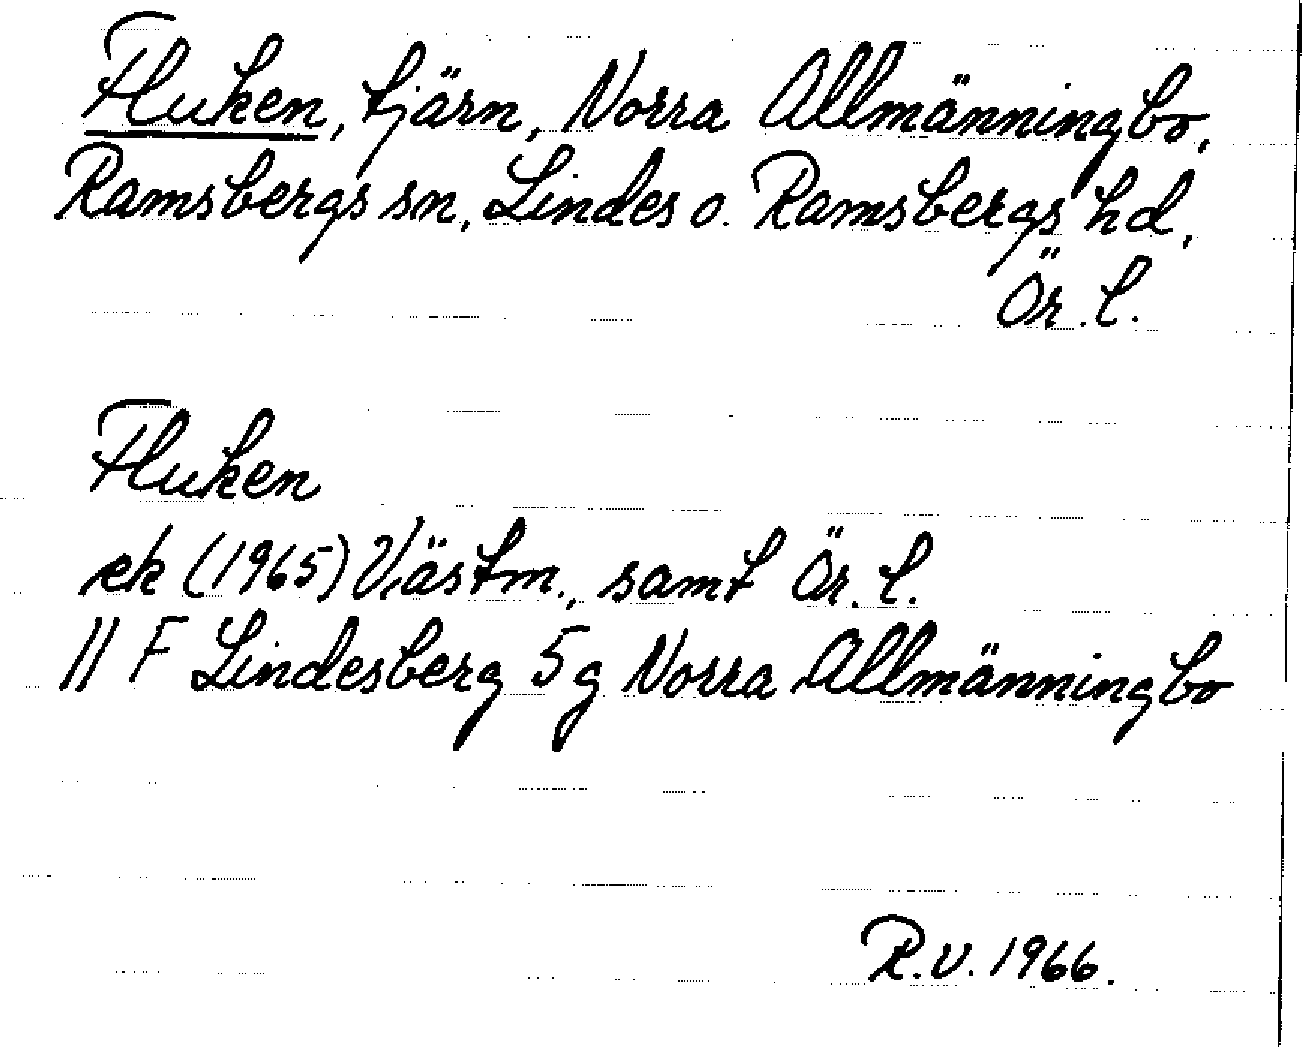 Fluken, tjärn, Norra Allmänningbo,
Ramsbergs sn, Lindes o. Ramsbergs hd,
Ör. l.
Fluken
ek (1965) Västm., samt Ör. l.
11 F Lindesberg 5 g Norra Allmänningbo
R.V. 1966.